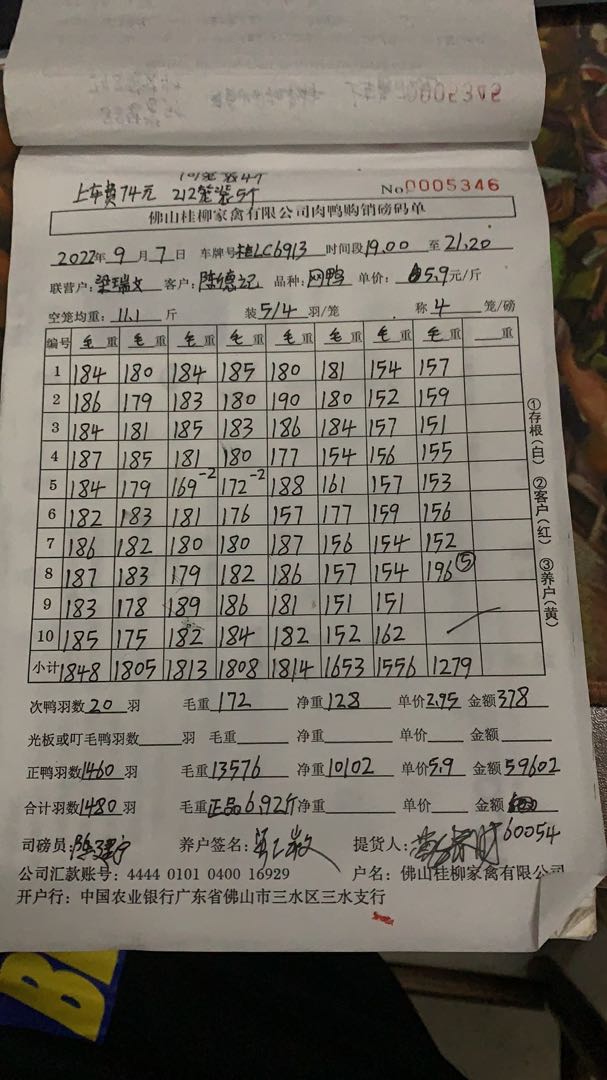 5346
上车费74元 212笼装5个
No 0005346
佛山桂柳家禽有限公司肉鸭购销磅码单
2022年9月7日 车牌号桂LC6913 时间段19.00至21.20
联营户:梁瑞文 客户:陈德记 品种:网鸭 单价:5.9元/斤
空笼均重:11.1斤 装5/4羽/笼 称4笼/磅
编号 毛重 毛重 毛重 毛重 毛重 毛重 毛重 毛重 重
1 184 180 184 185 180 181 154 157
2 186 179 183 180 190 180 152 159
3 184 181 185 183 186 184 157 151
4 187 185 181 180 177 154 156 155
5 184 179 169-2 172-2 188 161 157 153
6 182 183 181 176 157 177 159 156
7 186 182 180 180 187 156 154 152
8 187 183 179 182 186 157 154 196⑤
9 183 178 189 186 181 151 151
10 185 175 182 184 182 152 162
小计 1848 1805 1813 1808 1814 1653 1556 1279
①存根(白) ②客户(红) ③养户(黄)
次鸭羽数20羽 毛重172 净重128 单价2.95 金额378
光板或叮毛鸭羽数 羽 毛重 净重 单价 金额
正鸭羽数1460羽 毛重13576 净重10102 单价5.9 金额59602
合计羽数1480羽 毛重正品6.92斤 净重 单价 金额
60054
司磅员: 养户签名: 提货人:
公司汇款账号:4444 0101 0400 16929 户名:佛山桂柳家禽有限公司
开户行:中国农业银行广东省佛山市三水区三水支行